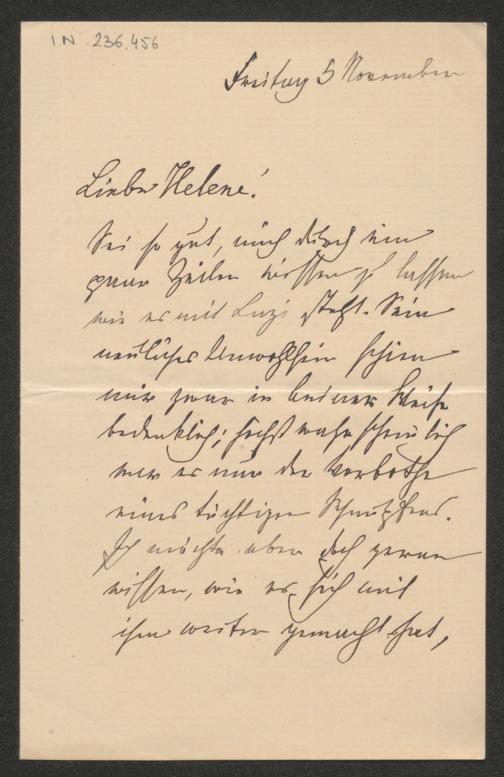 I.N. 236.456
Freitag 5 November
Liebe Helene!
Sei so gut, mich durch ein
paar Zeilen wissen zu lassen
wie es mit steht. Sein
neuliches Unwohlsein schien
mir zwar in keiner Weise
bedenklich; höchst wahrscheinlich
war es nur der Vorbothe
eines tüchtigen Schnupfens.
Ich möchte aber doch gerne
wissen, wie es sich mit
ihm weiter gemacht hat,